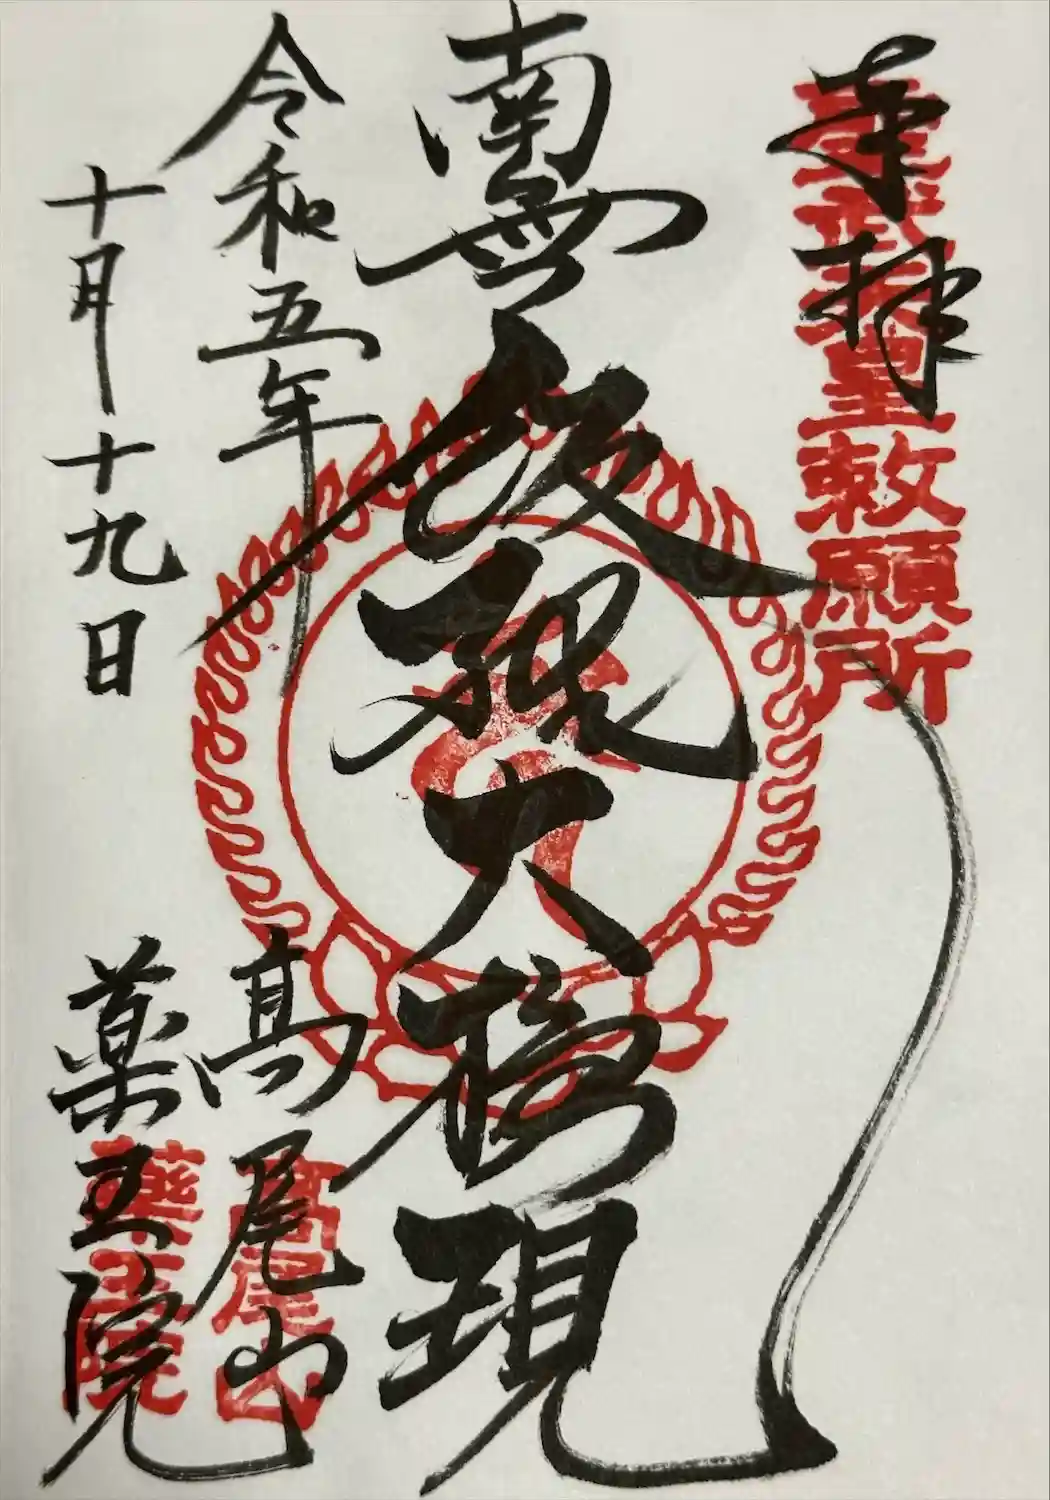 奉拝
聖武天皇敕願所
南無飯縄大権現
令和五年
十月十九日
高尾山
髙尾山
薬王院
藥王院